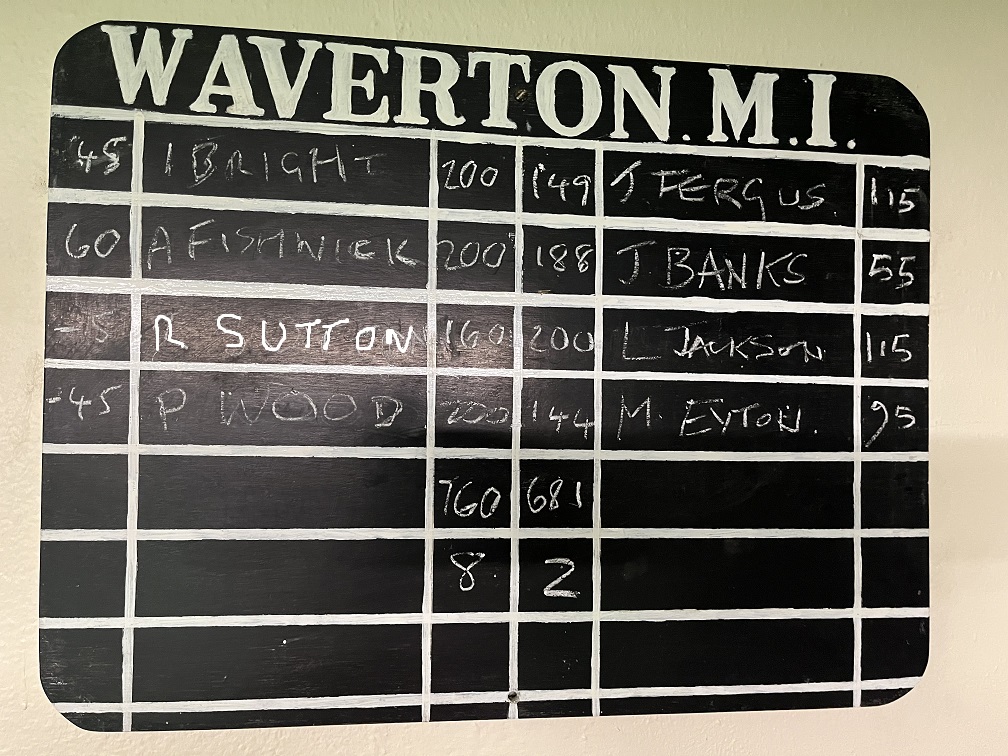 WAVERTON.M.I.
45 I BRIGHT 200 149 J FERGUS 115
60 A FISHWICK 200 188 J BANKS 55
-5 R SUTTON 160 200 L JACKSON 115
-45 P WOOD 200 144 M. EYTON. 95
760 681
8 2